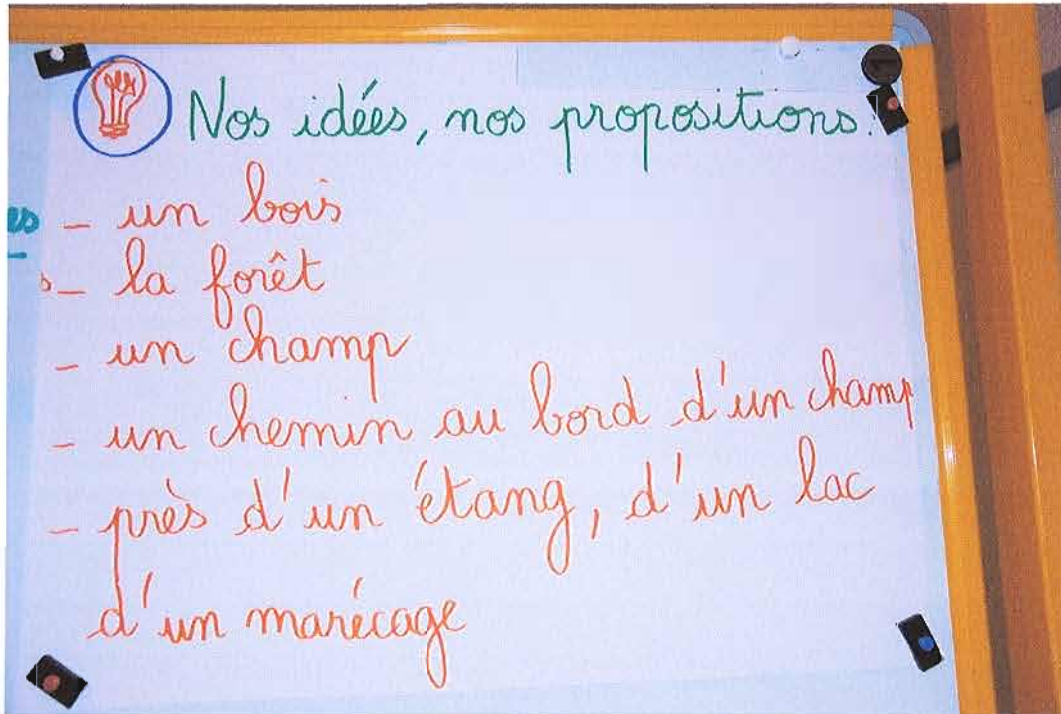 Nos idées, nos propositions.
es - un bois
s - la forêt
- un champ
- un chemin au bord d'un champ
- près d'un étang, d'un lac
d'un marécage